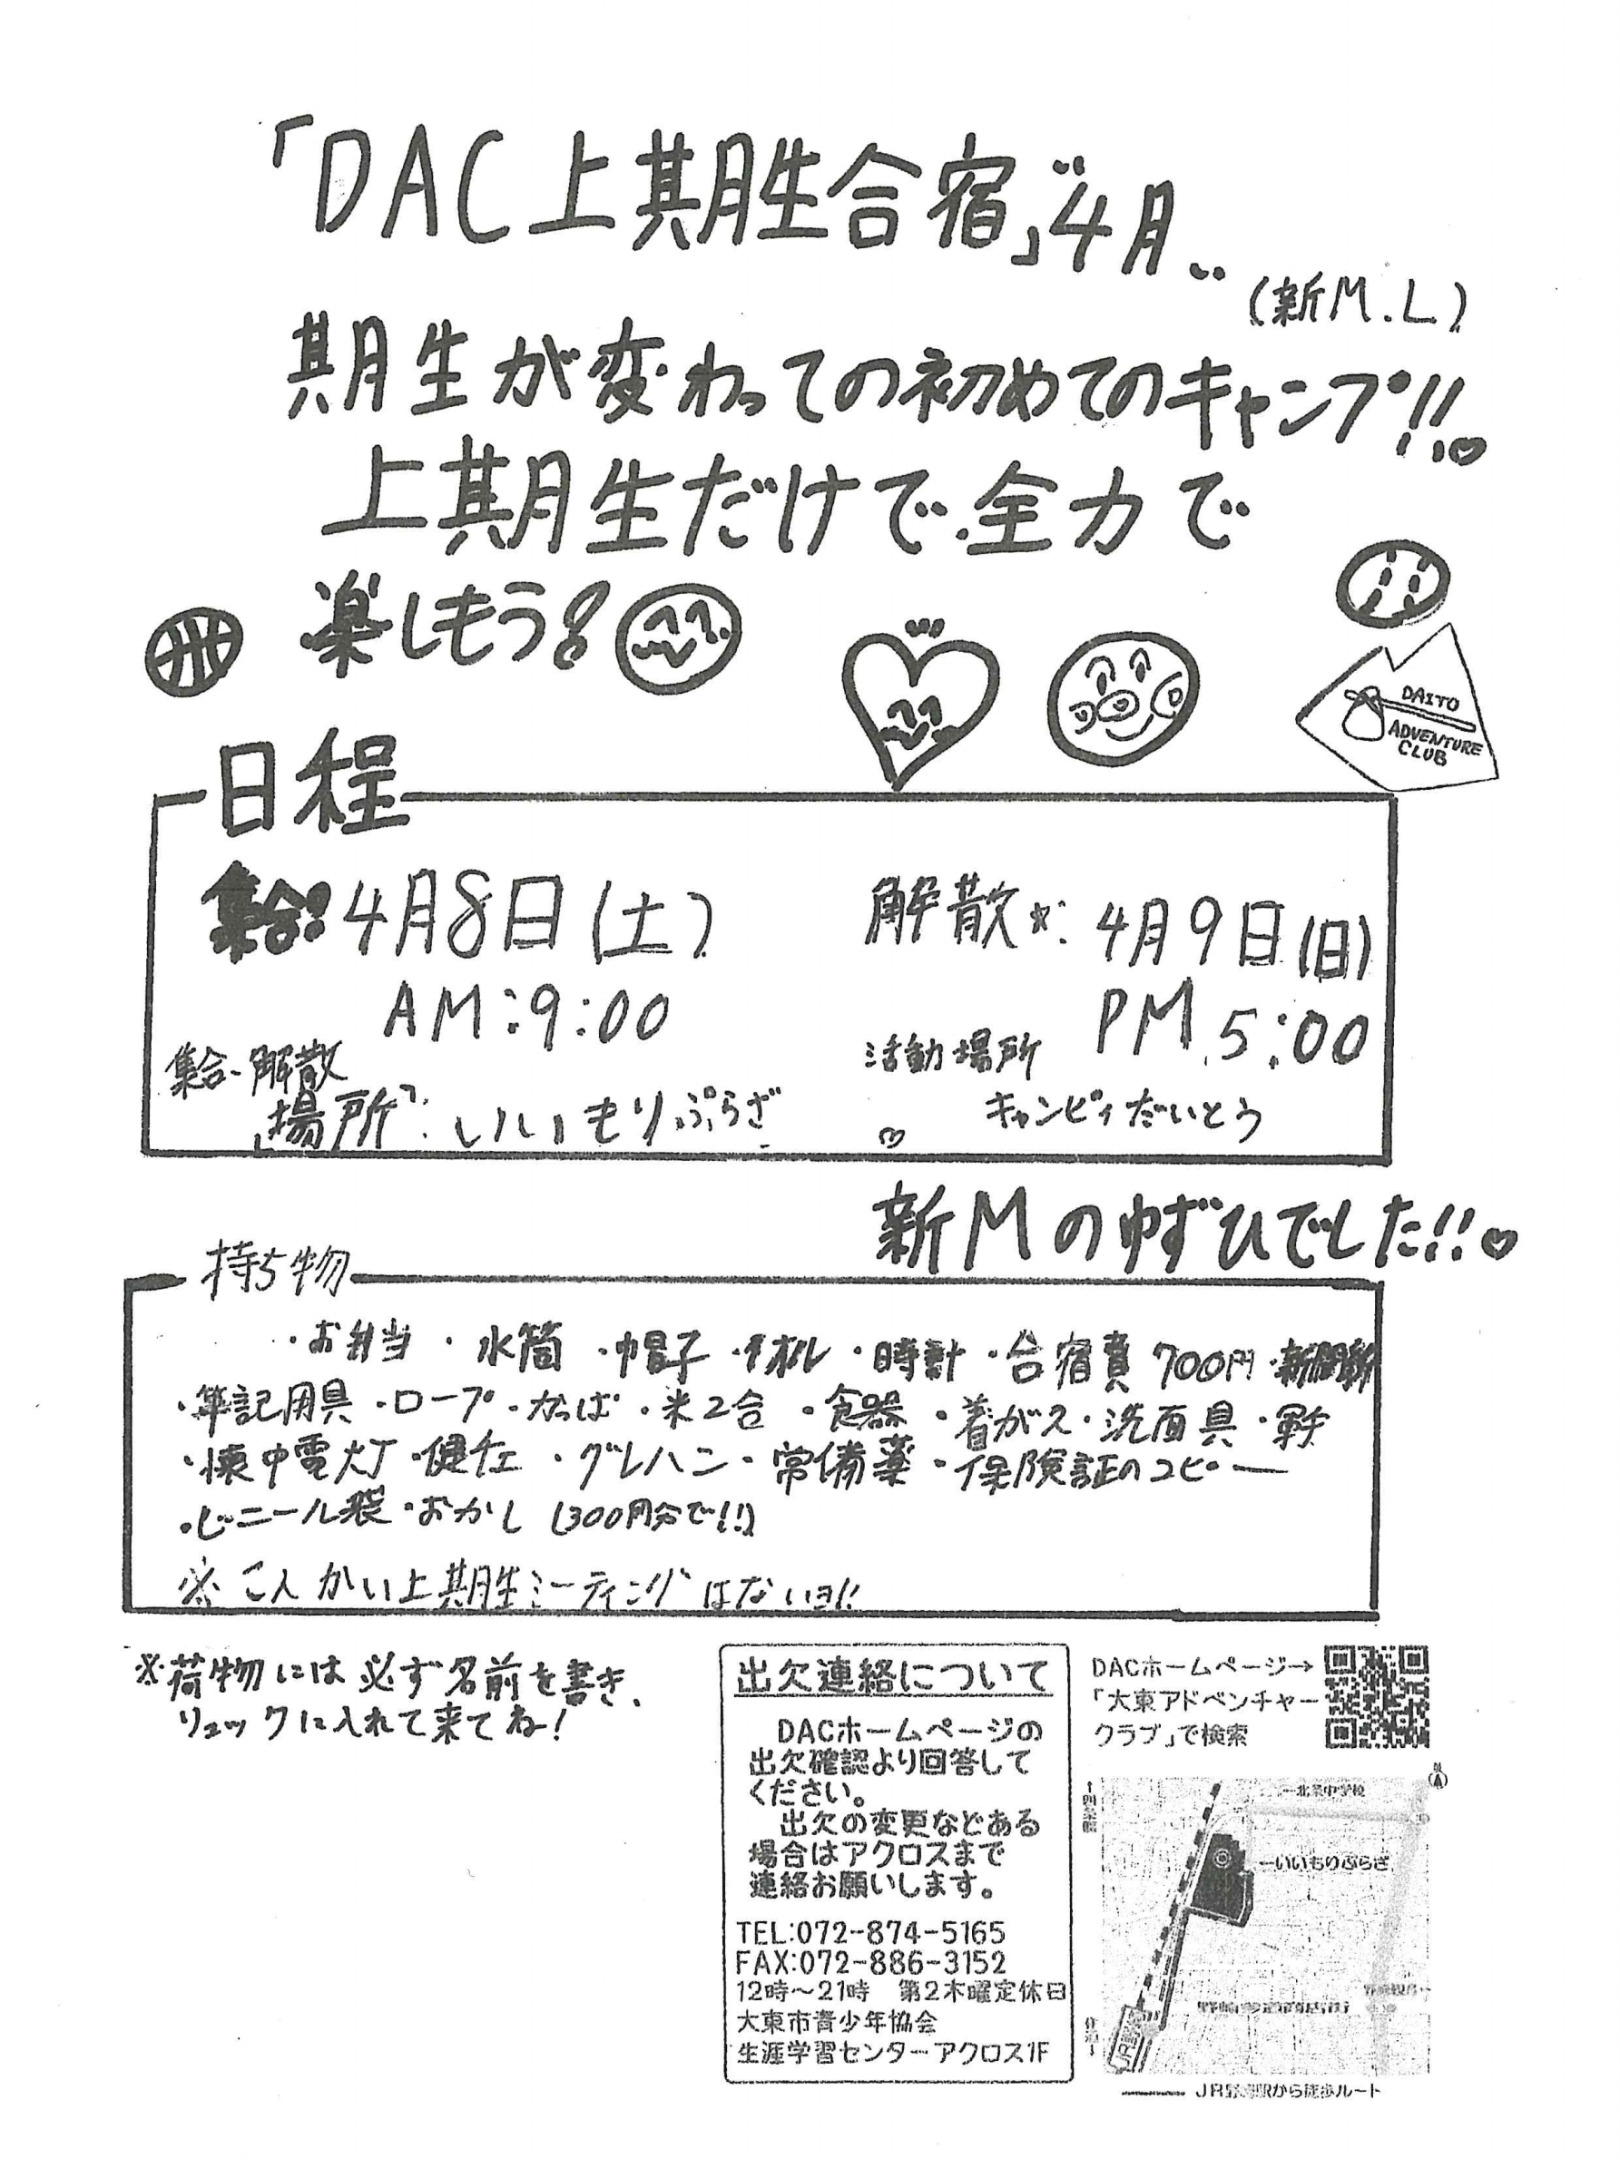 「DAC上期生合宿」4月
(新M.L)
期生が変わっての初めてのキャンプ!!
上期生だけで全力で
楽しもう!
DAITO
ADVENTURE
CLUB
日程
集合! 4月8日(土)
AM:9:00
解散*: 4月9日(日)
PM 5:00
集合・解散
「場所」: いいもりぷらざ
活動場所
キャンピィだいとう
新Mのゆずひでした!!
持ち物
・お弁当 ・水筒 ・帽子 ・タオル ・時計 ・合宿費 700円 ・新聞紙
・筆記用具 ・ロープ ・かっぱ ・米2合 ・食器 ・着がえ ・洗面具 ・軍手
・懐中電灯 ・健チェ ・グレハン ・常備薬 ・保険証のコピー
・ビニール袋 ・おかし (300円分で!!)
※こんかい上期生ミーティングはないヨ!!
※荷物には必ず名前を書き、
リュックに入れて来てね!
出欠連絡について
DACホームページの
出欠確認より回答して
ください。
出欠の変更などある
場合はアクロスまで
連絡お願いします。
TEL:072-874-5165
FAX:072-886-3152
12時~21時 第2木曜定休日
大東市青少年協会
生涯学習センターアクロス1F
DACホームページ→
「大東アドベンチャー
クラブ」で検索
←北条中学校
↑四条畷
←いいもりぷらざ
野崎参道商店街
住道↓
JR野崎駅
JR野崎駅から徒歩ルート